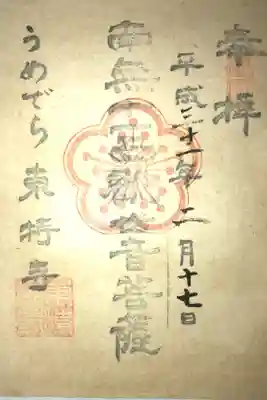 奉拝
平成三十一年二月十七日
南無 観世音菩薩
うめでら 東持寺